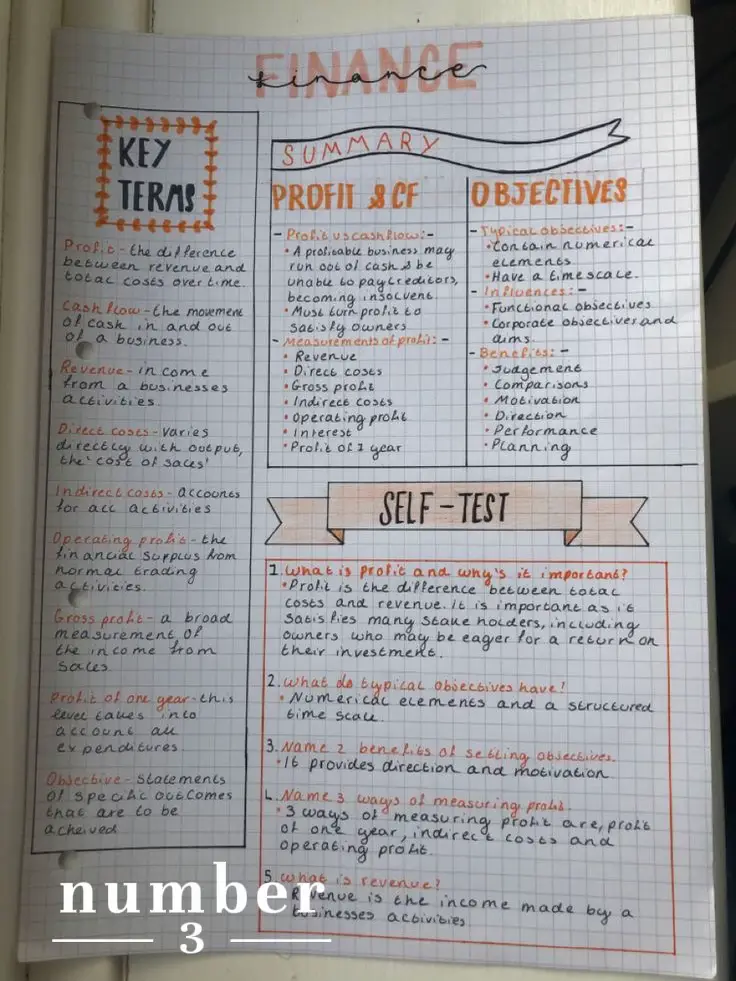 FINANCE
finance
KEY
TERMS
Profit - the difference
between revenue and
total costs over time.
Cash flow - the movement
of cash in and out
of a business.
Revenue - income
from a businesses
activities.
Direct costs - varies
directly with output,
the 'cost of sales'
Indirect costs - accounts
for all activities
Operating profit - the
financial surplus from
normal trading
activities.
Gross profit - a broad
measurement of
the income from
sales.
Profit of one year - this
level takes into
account all
expenditures.
Objective - statements
of specific outcomes
that are to be
acheived
SUMMARY
PROFIT & CF
- Profit vs cashflow: -
• A profitable business may
run out of cash & be
unable to pay creditors,
becoming insolvent.
• Must turn profit to
satisfy owners
- Measurements of profit: -
• Revenue
• Direct costs
• Gross profit
• Indirect costs
• Operating profit
• Interest
• Profit of 1 year
OBJECTIVES
- Typical objectives: -
• Contain numerical
elements
• Have a timescale.
- Influences: -
• Functional objectives
• Corporate objectives and
aims.
- Benefits: -
• Judgement
• Comparisons
• Motivation
• Direction
• Performance
• Planning
SELF-TEST
1. What is profit and why's it important?
• Profit is the difference between total
costs and revenue. It is important as it
satisfies many stake holders, including
owners who may be eager for a return on
their investment.
2. What do typical objectives have!
• Numerical elements and a structured
time scale.
3. Name 2 benefits of setting objectives.
• It provides direction and motivation.
4. Name 3 ways of measuring profit.
• 3 ways of measuring profit are, profit
of one year, indirect costs and
operating profit.
5. What is revenue?
Revenue is the income made by a
businesses activities
number
3